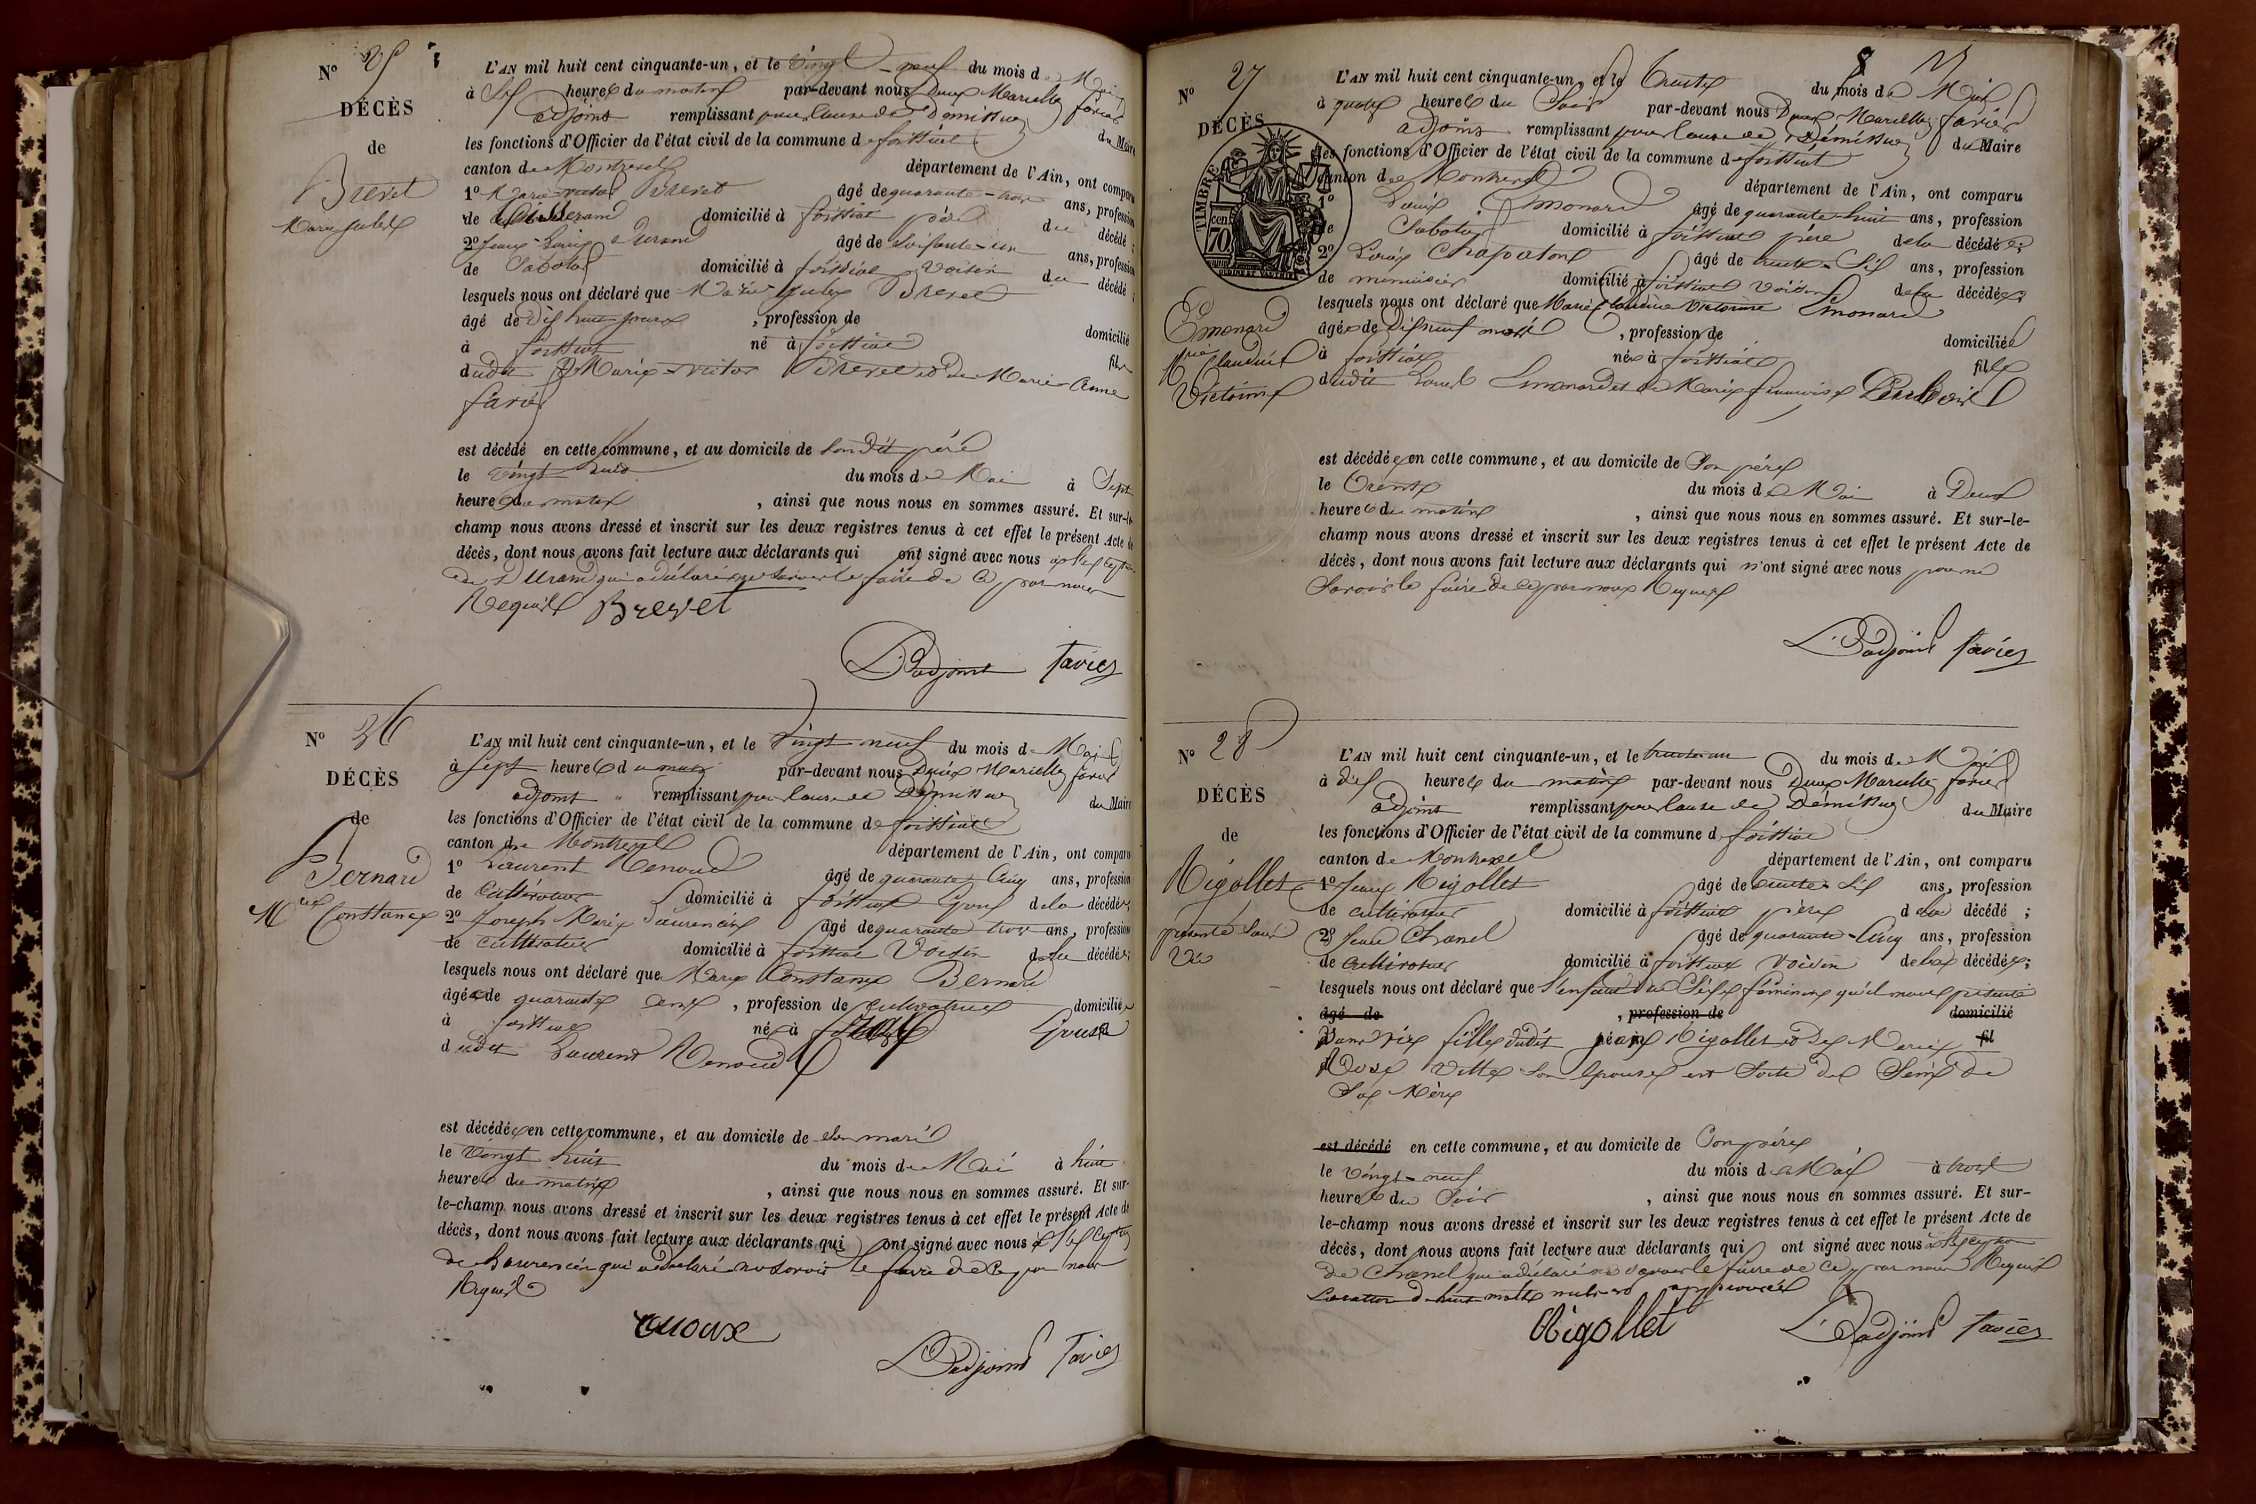 Nº 25
DÉCÈS
de
Brevet
Marie Jules
L'AN mil huit cent cinquante-un, et le Vingt-neuf du mois de Mai
à Six heures du matin par-devant nous Marcellin favier
adjoint remplissant pour cause de Démission du Maire
les fonctions d'Officier de l'état civil de la commune de foissiat
canton de Montrevel département de l'Ain, ont comparu
1º Marie-victor Brevet âgé de quarante-trois ans, profession
de domicilié à foissiat père du décédé ;
2º Jean-Louis Durand âgé de Soixante-un ans, profession
de Sabotier domicilié à foissiat voisin du décédé ;
lesquels nous ont déclaré que Marie Jules Brevet
âgé de Dix huit jours , profession de domicilié
à foissiat né à foissiat fils
dudit Marie-victor Brevet et de Marie Anne
favier
est décédé en cette commune, et au domicile de Son dit père
le vingt huit du mois de Mai à Sept
heures du matin , ainsi que nous nous en sommes assuré. Et sur-le-
champ nous avons dressé et inscrit sur les deux registres tenus à cet effet le présent Acte de
décès, dont nous avons fait lecture aux déclarants qui ont signé avec nous
de Durand qui a déclaré ne Savoir le faire de ce par nous
Requis Brevet
L'adjoint favier
Nº 26
DÉCÈS
de
Bernard
Mie Constance
L'AN mil huit cent cinquante-un, et le Vingt neuf du mois de Mai
à Sept heures du matin par-devant nous Marcellin favier
adjoint remplissant pour cause de Démission du Maire
les fonctions d'Officier de l'état civil de la commune de foissiat
canton de Montrevel département de l'Ain, ont comparu
1º Laurent Renoud âgé de quarante Cinq ans, profession
de Cultivateur domicilié à foissiat Epoux de la décédée ;
2º Joseph Marie Laurencin âgé de quarante trois ans, profession
de cultivateur domicilié à foissiat Voisin de la décédée ;
lesquels nous ont déclaré que Marie Constance Bernard
âgée de quarante ans , profession de cultivatrice domiciliée
à foissiat née à Epouse
dudit Laurent Renoud
est décédée en cette commune, et au domicile de Son mari
le Vingt huit du mois de Mai à huit
heures du matin , ainsi que nous nous en sommes assuré. Et sur-
le-champ nous avons dressé et inscrit sur les deux registres tenus à cet effet le présent Acte de
décès, dont nous avons fait lecture aux déclarants qui ont signé avec nous
de Laurencin qui a déclaré ne Savoir le faire de Ce par nous
Requis
L'adjoint favier
Nº 27
DÉCÈS
TIMBRE
70
Emonard
Mie Claudine
Victorine
L'AN mil huit cent cinquante-un, et le Trente du mois de Mai
à quatre heures du Soir par-devant nous Marcellin favier
adjoint remplissant pour cause de Démission du Maire
les fonctions d'Officier de l'état civil de la commune de foissiat
canton de Montrevel département de l'Ain, ont comparu
1º Louis Emonard âgé de quarante-huit ans, profession
de Sabotier domicilié à foissiat père de la décédée ;
2º Louis Chapaton âgé de trente-Six ans, profession
de menuisier domicilié à foissiat voisin de la décédée ;
lesquels nous ont déclaré que Marie Claudine Victorine Emonard
âgée de Dix neuf mois , profession de domiciliée
à foissiat née à foissiat fille
dudit Louis Emonard et de Marie françoise
est décédée en cette commune, et au domicile de Son père
le Trente du mois de Mai à Deux
heures du matin , ainsi que nous nous en sommes assuré. Et sur-le-
champ nous avons dressé et inscrit sur les deux registres tenus à cet effet le présent Acte de
décès, dont nous avons fait lecture aux déclarants qui n'ont signé avec nous pour ne
Savoir le faire de ce par nous Requis
L'adjoint favier
Nº 28
DÉCÈS
de
Rigollet
présenté Sans
Vie
L'AN mil huit cent cinquante-un, et le trente un du mois de Mai
à dix heures du matin par-devant nous Marcellin favier
adjoint remplissant pour cause de Démission du Maire
les fonctions d'Officier de l'état civil de la commune de foissiat
canton de Montrevel département de l'Ain, ont comparu
1º Jean Rigollet âgé de trente-Six ans, profession
de cultivateur domicilié à foissiat père de la décédé ;
2º Jean Chanel âgé de quarante-Cinq ans, profession
de cultivateur domicilié à foissiat voisin de la décédée ;
lesquels nous ont déclaré que l'enfant du Sexe féminin qu'il nous présente
âgé de , profession de domicilié
Sans vie fille dudit Jean Rigollet et de Marie fil
Rose Vitte Son Epouse est Sortie du Sein de
Sa Mère
est décédé en cette commune, et au domicile de Son père
le Vingt-neuf du mois de Mai à trois
heures du Soir , ainsi que nous nous en sommes assuré. Et sur-
le-champ nous avons dressé et inscrit sur les deux registres tenus à cet effet le présent Acte de
décès, dont nous avons fait lecture aux déclarants qui ont signé avec nous
de Chanel qui a déclaré ne Savoir le faire de Ce par nous Requis
mots nuls approuvés
Rigollet L'adjoint favier